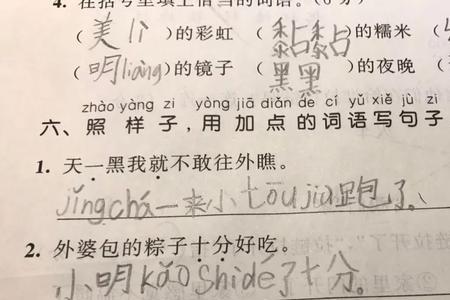 4. 在括号里填上恰当的词语。(6分)
(美lì)的彩虹 (黏黏)的糯米
(明liàng)的镜子 (黑黑)的夜晚
zhào yàng zi yòng jiā diǎn de cí yǔ xiě jù zi
六、照样子，用加点的词语写句子
1. 天一黑我就不敢往外瞧。
jǐngchá一来小tōu jiù跑了。
2. 外婆包的粽子十分好吃。
小明kǎo shì dé了十分。